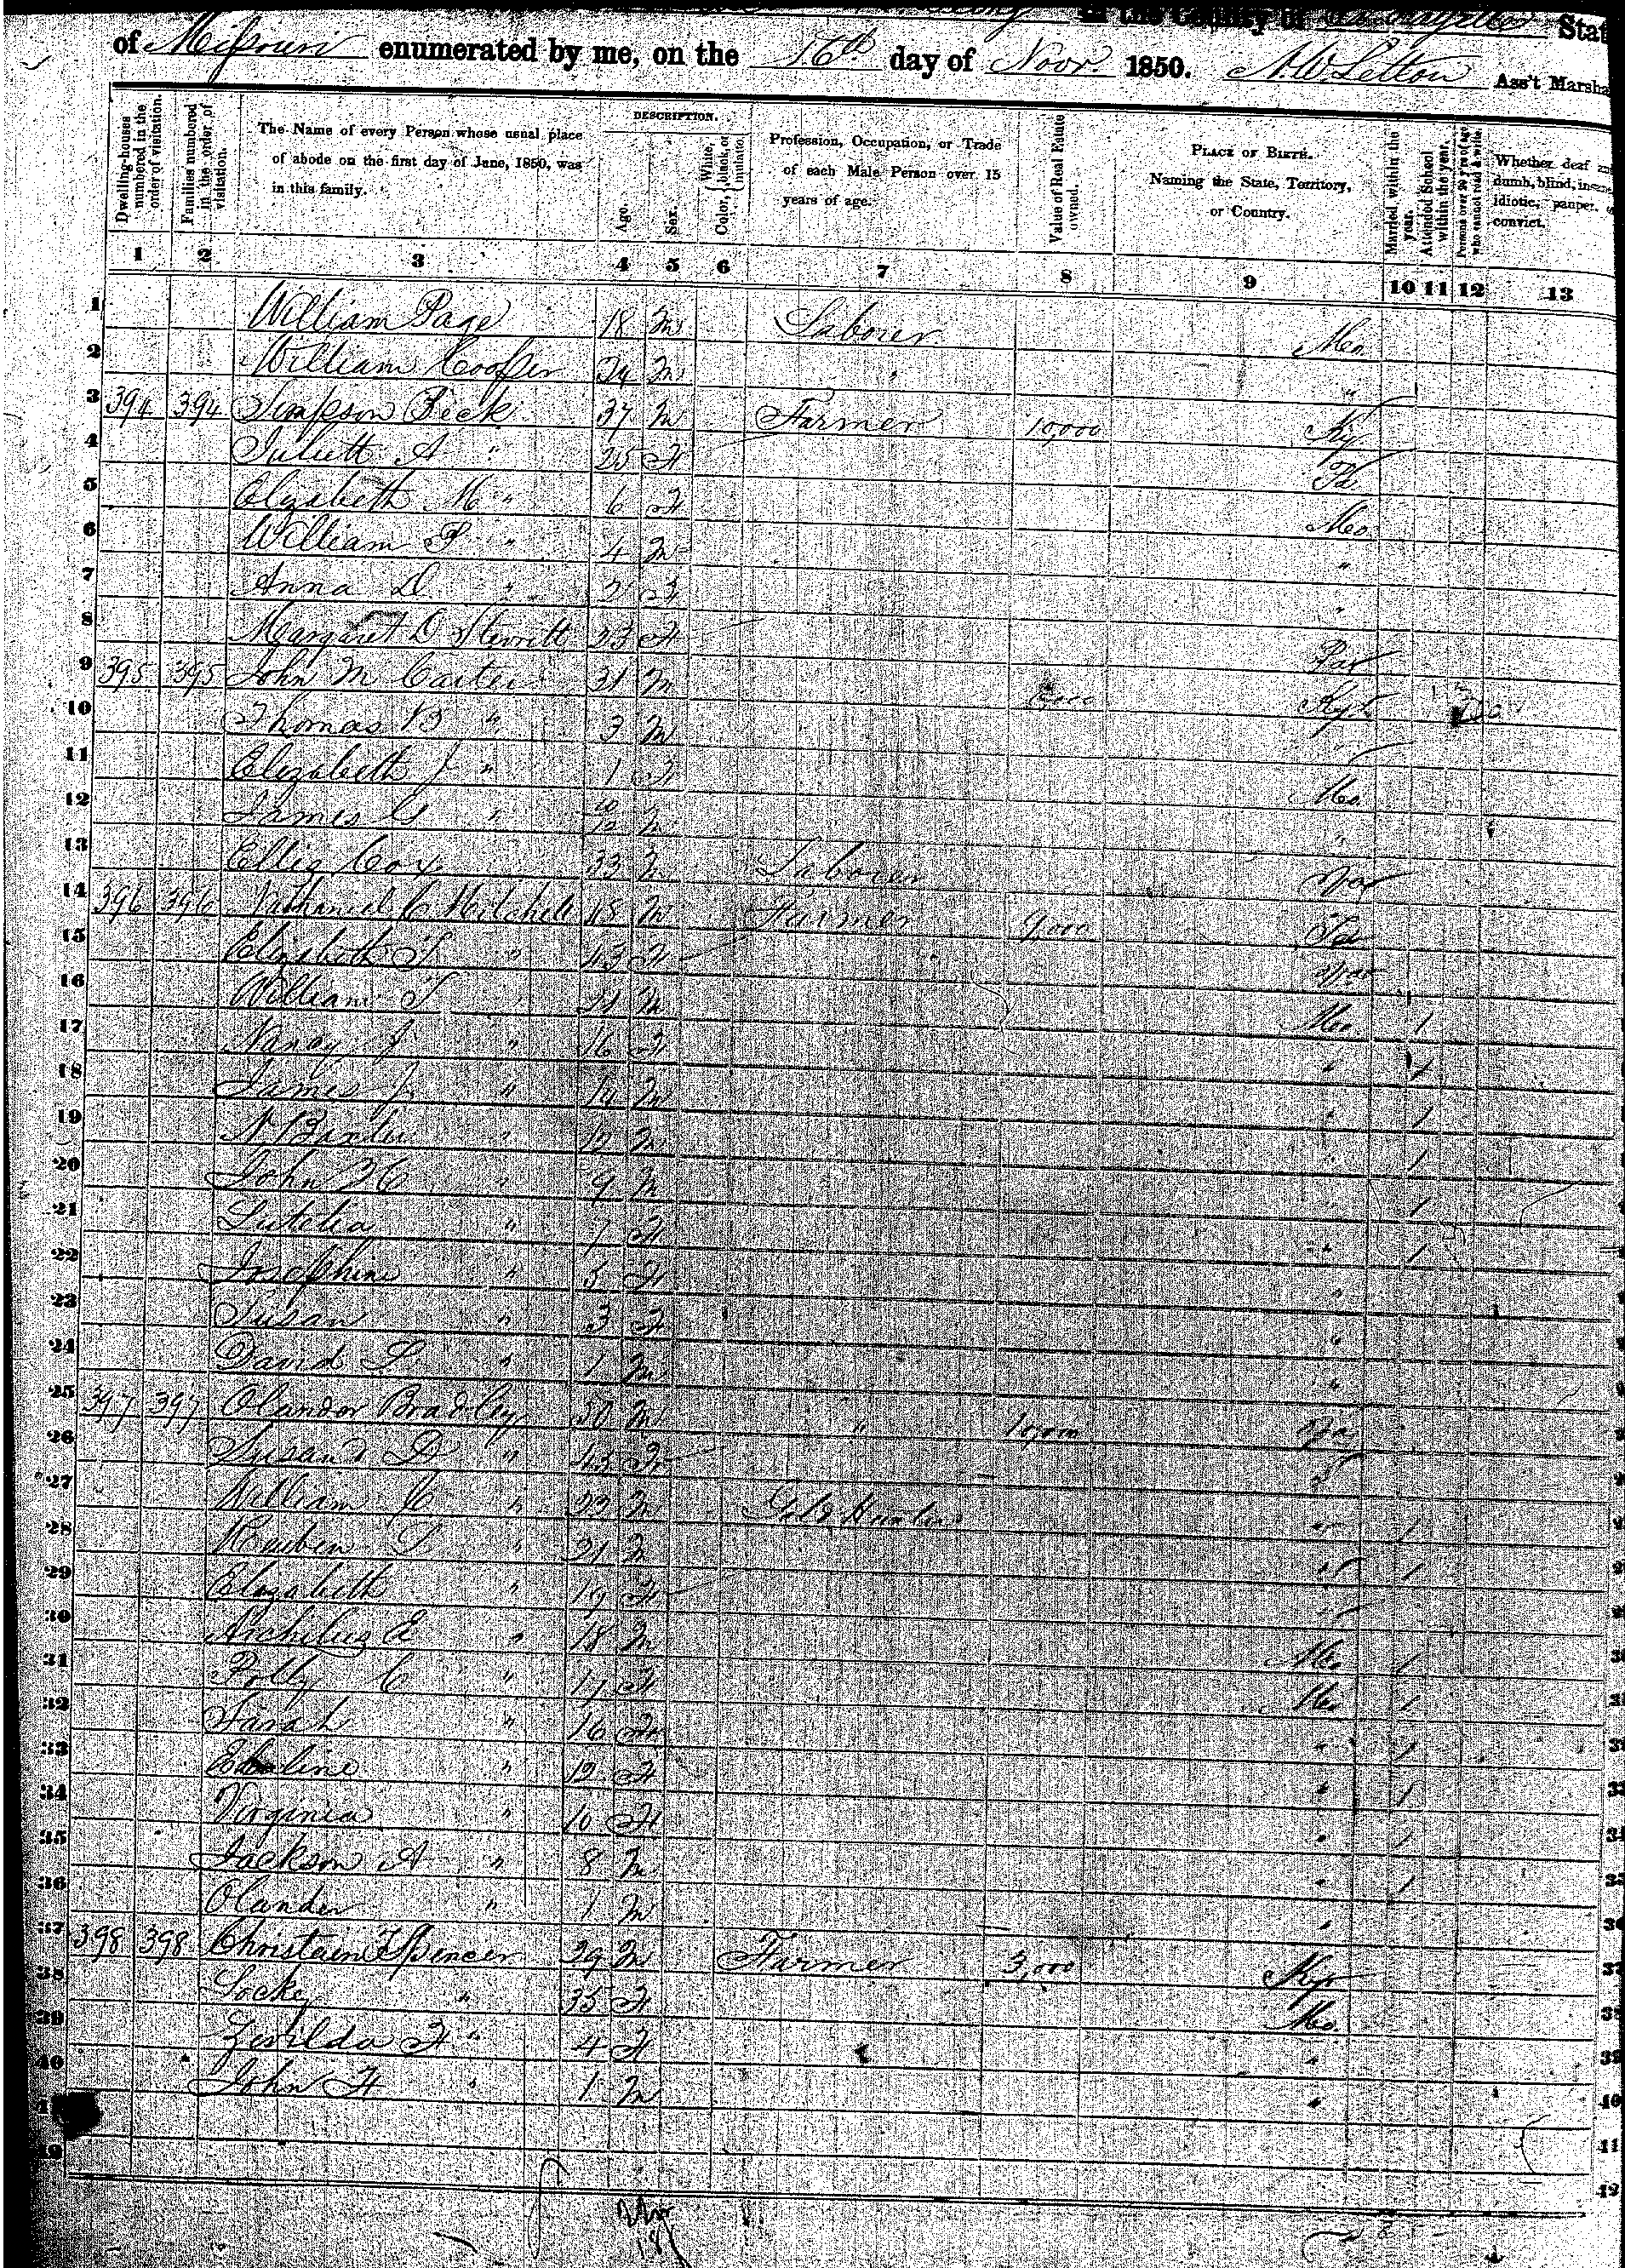 in the County of State
of Missouri enumerated by me, on the 16th day of Novr. 1850. A.W. Letton Ass't Marshal
Dwelling-houses numbered in the order of visitation.
Families numbered in the order of visitation.
The Name of every Person whose usual place of abode on the first day of June, 1850, was in this family.
DESCRIPTION.
Age.
Sex.
Color, White, black, or mulatto.
Profession, Occupation, or Trade of each Male Person over 15 years of age.
Value of Real Estate owned.
PLACE OF BIRTH. Naming the State, Territory, or Country.
Married within the year.
Attended School within the year.
Persons over 20 y'rs of age who cannot read & write.
Whether deaf and dumb, blind, insane, idiotic, pauper, or convict.
1 2 3 4 5 6 7 8 9 10 11 12 13
1 William Page 18 M Laborer Mo.
2 William Cooper 24 M "
3 394 394 Simpson Peck 37 M Farmer 10,000 Ky
4 Juliett A " 25 F
5 Elizabeth M " 6 F Mo
6 William " 4 M "
7 Anna D " 2 F "
8 Margaret D Sterritt 33 F Pa
9 395 395 John M Carter 31 M Ky
10 Thomas B " 3 M "
11 Elizabeth J " 1 F Mo
12 James G " 10/12 M "
13 Cox 33 M Laborer Va
14 396 396 Nathaniel C Mitchell 48 M Farmer 9,000
15 Elizabeth " 43 F
16 William T " 21 M Mo 1
17 Nancy J " 16 F " 1
18 James J. " 14 M " 1
19 N Baxter " 12 M " 1
20 John H C " 9 M " 1
21 Lutelia " 7 F " 1
22 Josephine " 5 F "
23 Susan " 3 F "
24 David S " 1 M "
25 397 397 Olander Bradley 50 M " 10,000 Va
26 Susan D " 43 F "
27 William " 23 M " 1
28 Reuben " 21 M " 1
29 Elizabeth " 19 F "
30 Archilus E " 18 M Mo 1
31 Polly C " 17 F Mo 1
32 Sarah " 16 F " 1
33 Emeline " 12 F " 1
34 Virginia " 10 F " 1
35 Jackson A " 8 M " 1
36 Olander " 1 M "
37 398 398 Christain F Spencer 29 M Farmer 3,000 Ky
38 Locky " 35 F Mo.
39 Zerilda F " 4 F "
40 John H " 1 M "